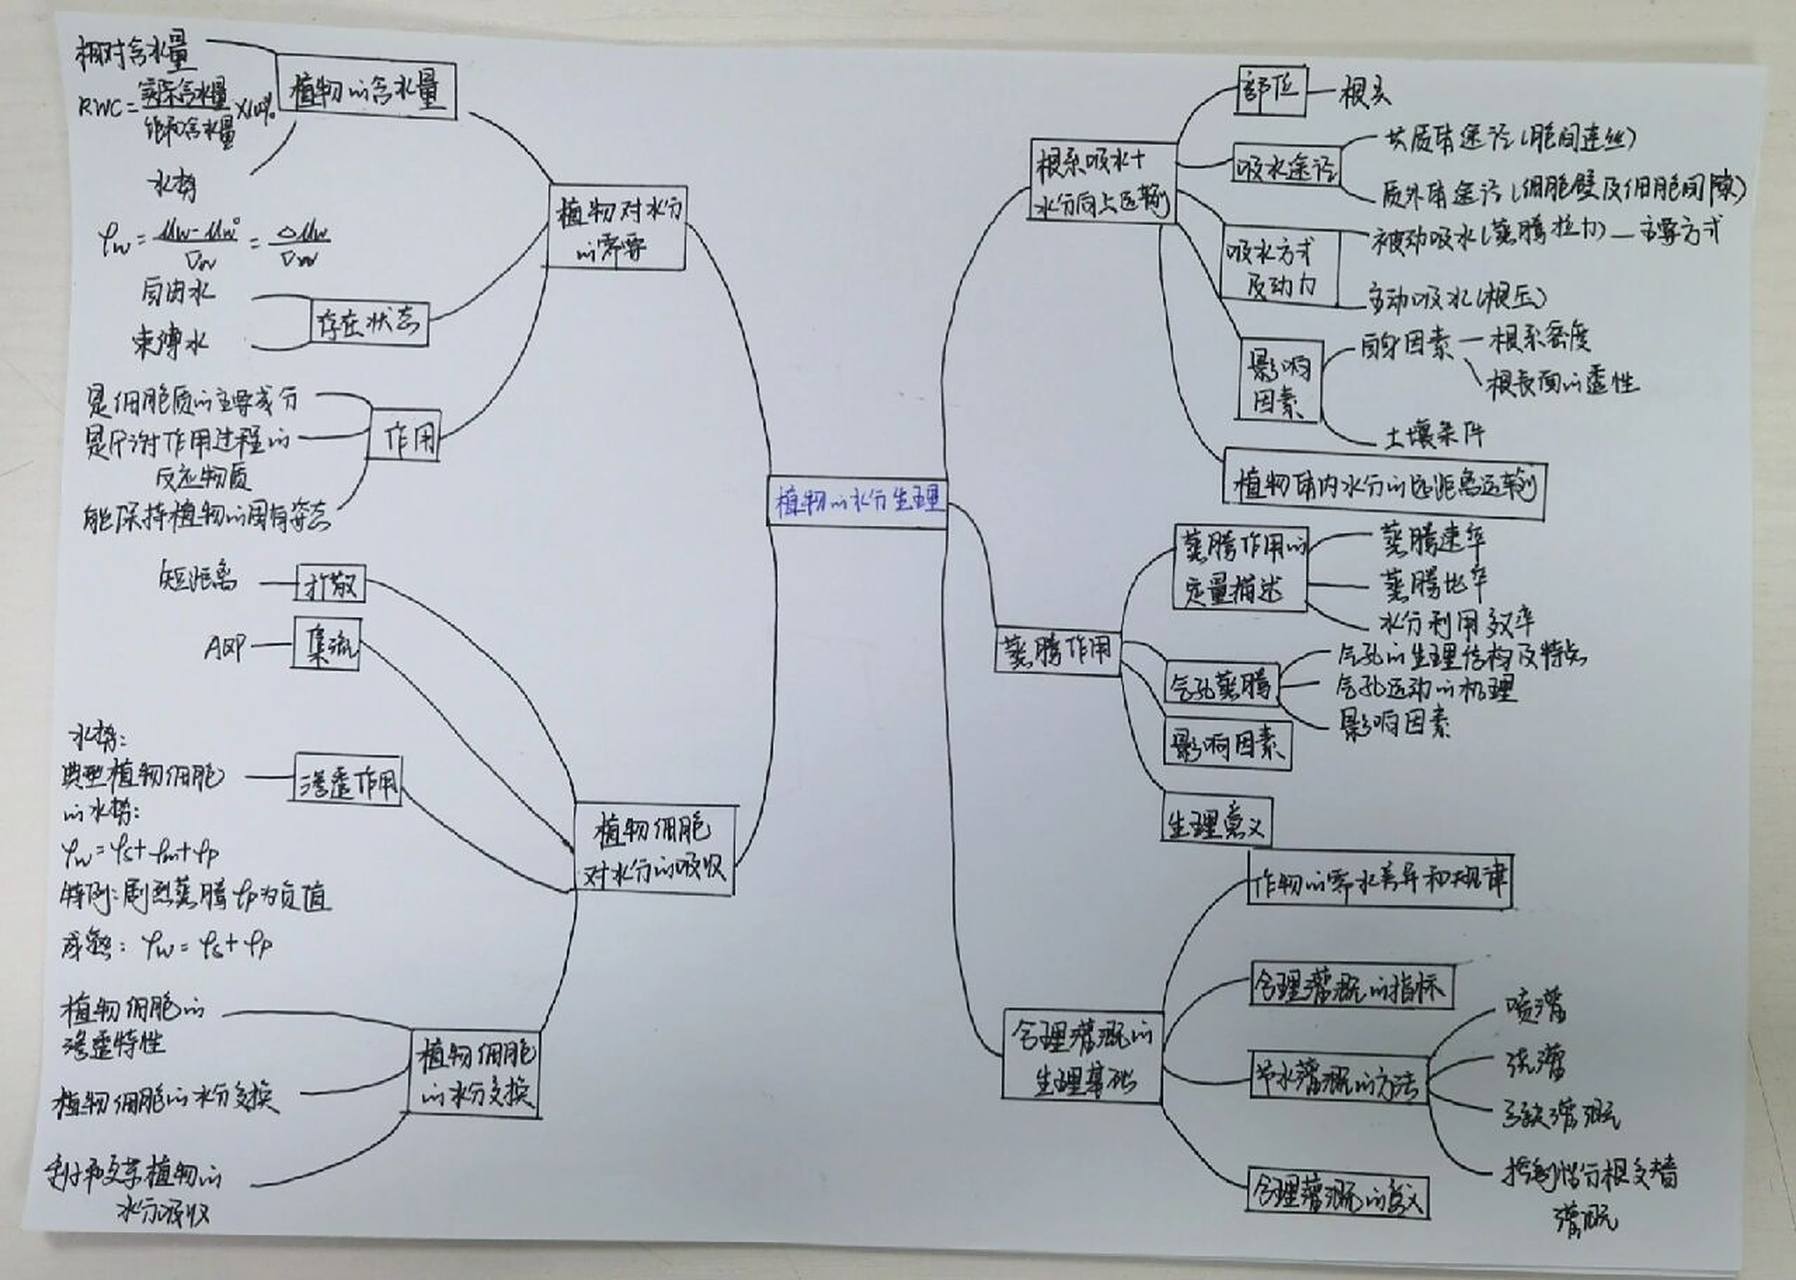 相对含水量
RWC=实际含水量/饱和含水量×100%
植物的含水量
水势
ψw=μw-μw°/Vw=Δμw/Vw
植物对水分
的需要
自由水
束缚水
存在状态
是细胞质的主要成分
是代谢作用过程的
反应物质
能保持植物的固有姿态
作用
植物的水分生理
短距离
扩散
AQP
集流
水势:
典型植物细胞
的水势:
ψw=ψs+ψm+ψp
特例:剧烈蒸腾ψp为负值
成熟:ψw=ψs+ψp
渗透作用
植物细胞
对水分的吸收
植物细胞的
渗透特性
植物细胞的水分交换
植物的
水分吸收
植物细胞
的水分交换
根系吸水+
水分向上运输
部位
根尖
吸水途径
共质体途径(胞间连丝)
质外体途径(细胞壁及细胞间隙)
吸水方式
及动力
被动吸水(蒸腾拉力)—主要方式
主动吸水(根压)
影响
因素
自身因素
根系密度
根表面的透性
土壤条件
植物体内水分的远距离运输
蒸腾作用
蒸腾作用的
定量描述
蒸腾速率
蒸腾比率
水分利用效率
气孔蒸腾
气孔的生理结构及特点
气孔运动的机理
影响因素
影响因素
生理意义
合理灌溉的
生理基础
作物的需水差异和规律
合理灌溉的指标
节水灌溉的方法
喷灌
灌溉
控制性分根交替
灌溉
合理灌溉的意义